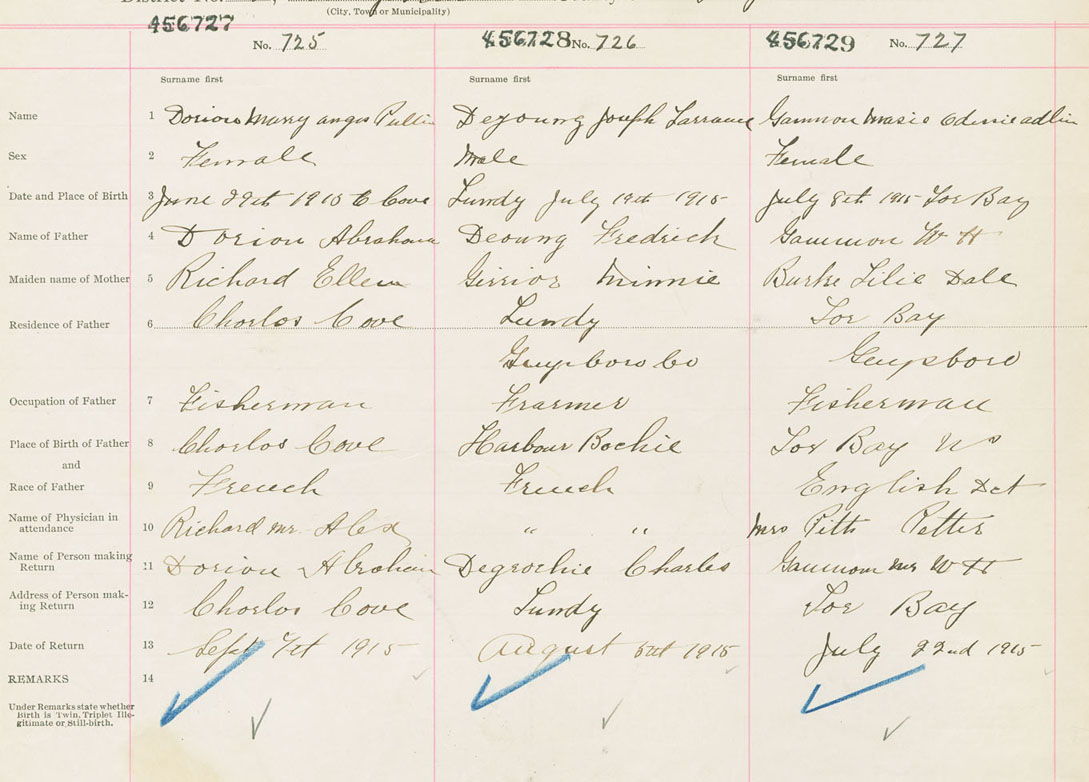 District No.
(City, Town or Municipality)
456727 No. 725 456728 No. 726 456729 No. 727
Surname first Surname first Surname first
Name 1 Dorion Mary angus Deyoung Joseph Larrance Gammon
Sex 2 Female Male Female
Date and Place of Birth 3 June 29th 1915 C Cove Lundy July 19th 1915 July 8th 1915 Tor Bay
Name of Father 4 Dorion Abraham Deoung Fredrick Gammon W H
Maiden name of Mother 5 Richard Ellen Girrior Minnie Burke Lilie Dale
Residence of Father 6 Chorlos Cove Lundy Tor Bay
Guysboro Co Guysboro
Occupation of Father 7 Fisherman Frarmer Fisherman
Place of Birth of Father 8 Chorlos Cove Harbour Bochie Tor Bay NS
and
Race of Father 9 French French English Dct
Name of Physician in
attendance 10 Richard Mr. Alex " " Mrs Pitts Petter
Name of Person making
Return 11 Dorion Abraham Degrochie Charles Gammon Mr W H
Address of Person mak-
ing Return 12 Chorlos Cove Lundy Tor Bay
Date of Return 13 Sept 7st 1915 August 5th 1915 July 22nd 1915
REMARKS 14
Under Remarks state whether
Birth is Twin, Triplet Ille-
gitimate or Still-birth.